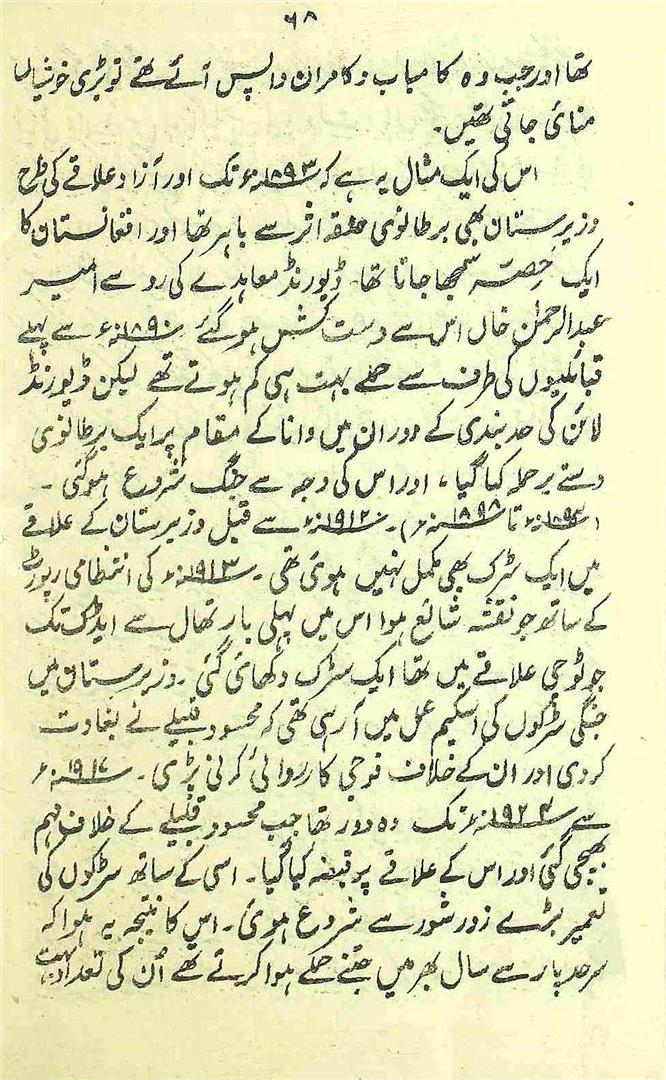 ۶۸
تھا اور جب وہ کامیاب و کامران واپس آتے تھے تو بڑی خوشیاں
منائی جاتی تھیں۔
اس کی ایک مثال یہ ہے کہ ۱۸۹۳ء تک اور آزاد علاقے کی طرح
وزیرستان بھی برطانوی حلقہ اثر سے باہر تھا اور افغانستان کا
ایک حصّہ سمجھا جاتا تھا۔ ڈیورنڈ معاہدے کی رو سے امیر
عبدالرحمٰن خاں اس سے دست کش ہو گئے ۱۸۹۰ء سے پہلے
قبائلیوں کی طرف سے حملے بہت ہی کم ہوتے تھے لیکن ڈیورنڈ
لائن کی حد بندی کے دوران میں وانا کے مقام پر ایک برطانوی
دستے پر حملہ کیا گیا، اور اس کی وجہ سے جنگ شروع ہو گئی۔
(۱۸۹۷ء تا ۱۸۹۸ء)۔ ۱۹۱۲ء سے قبل وزیرستان کے علاقے
میں ایک سڑک بھی مکمل نہیں ہوئی تھی۔ ۱۹۱۳ء کی انتظامی رپورٹ
کے ساتھ جو نقشہ شائع ہوا اس میں پہلی بار تھال سے ایدک تک
جو ٹوچی علاقے میں تھا ایک سڑک دکھائی گئی۔ وزیرستان میں
جنگی سڑکوں کی اسکیم عمل میں آ رہی تھی کہ محسود قبیلے نے بغاوت
کر دی اور ان کے خلاف فوجی کارروائی کرنی پڑی۔ ۱۹۱۷ء
سے ۱۹۲۳ء تک وہ دور تھا جب محسود قبیلے کے خلاف مہم
بھیجی گئی اور اس کے علاقے پر قبضہ کیا گیا۔ اسی کے ساتھ سڑکوں کی
تعمیر بڑے زور شور سے شروع ہوئی۔ اس کا نتیجہ یہ ہوا کہ
سرحد پار سے سال بھر میں جتنے حملے ہوا کرتے تھے اُن کی تعداد بہت